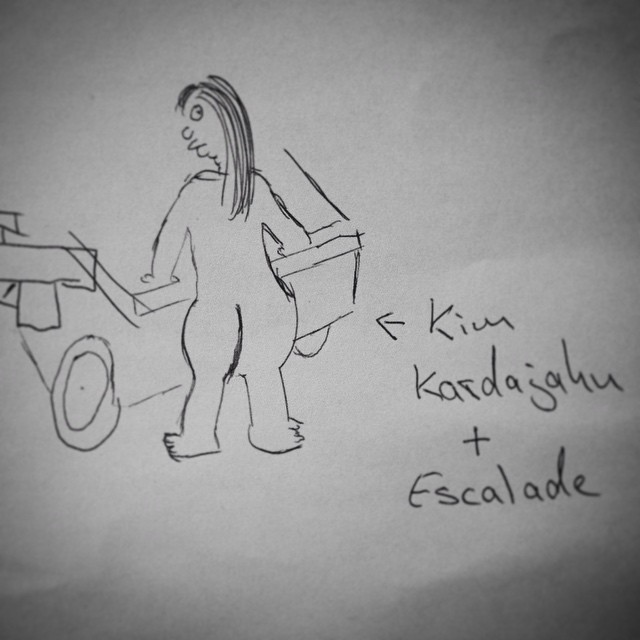 ← Kim
Kardajahn
+
Escalade